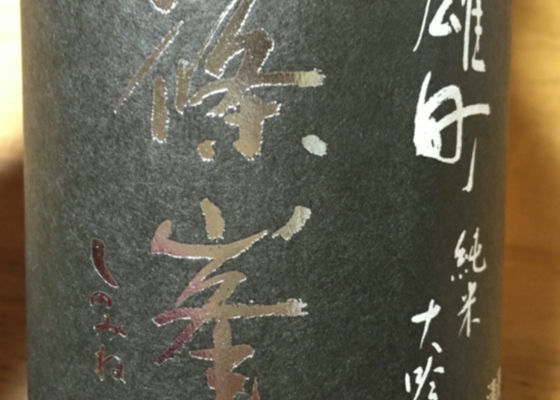 雄町
純米
大吟
篠峯
しのみね